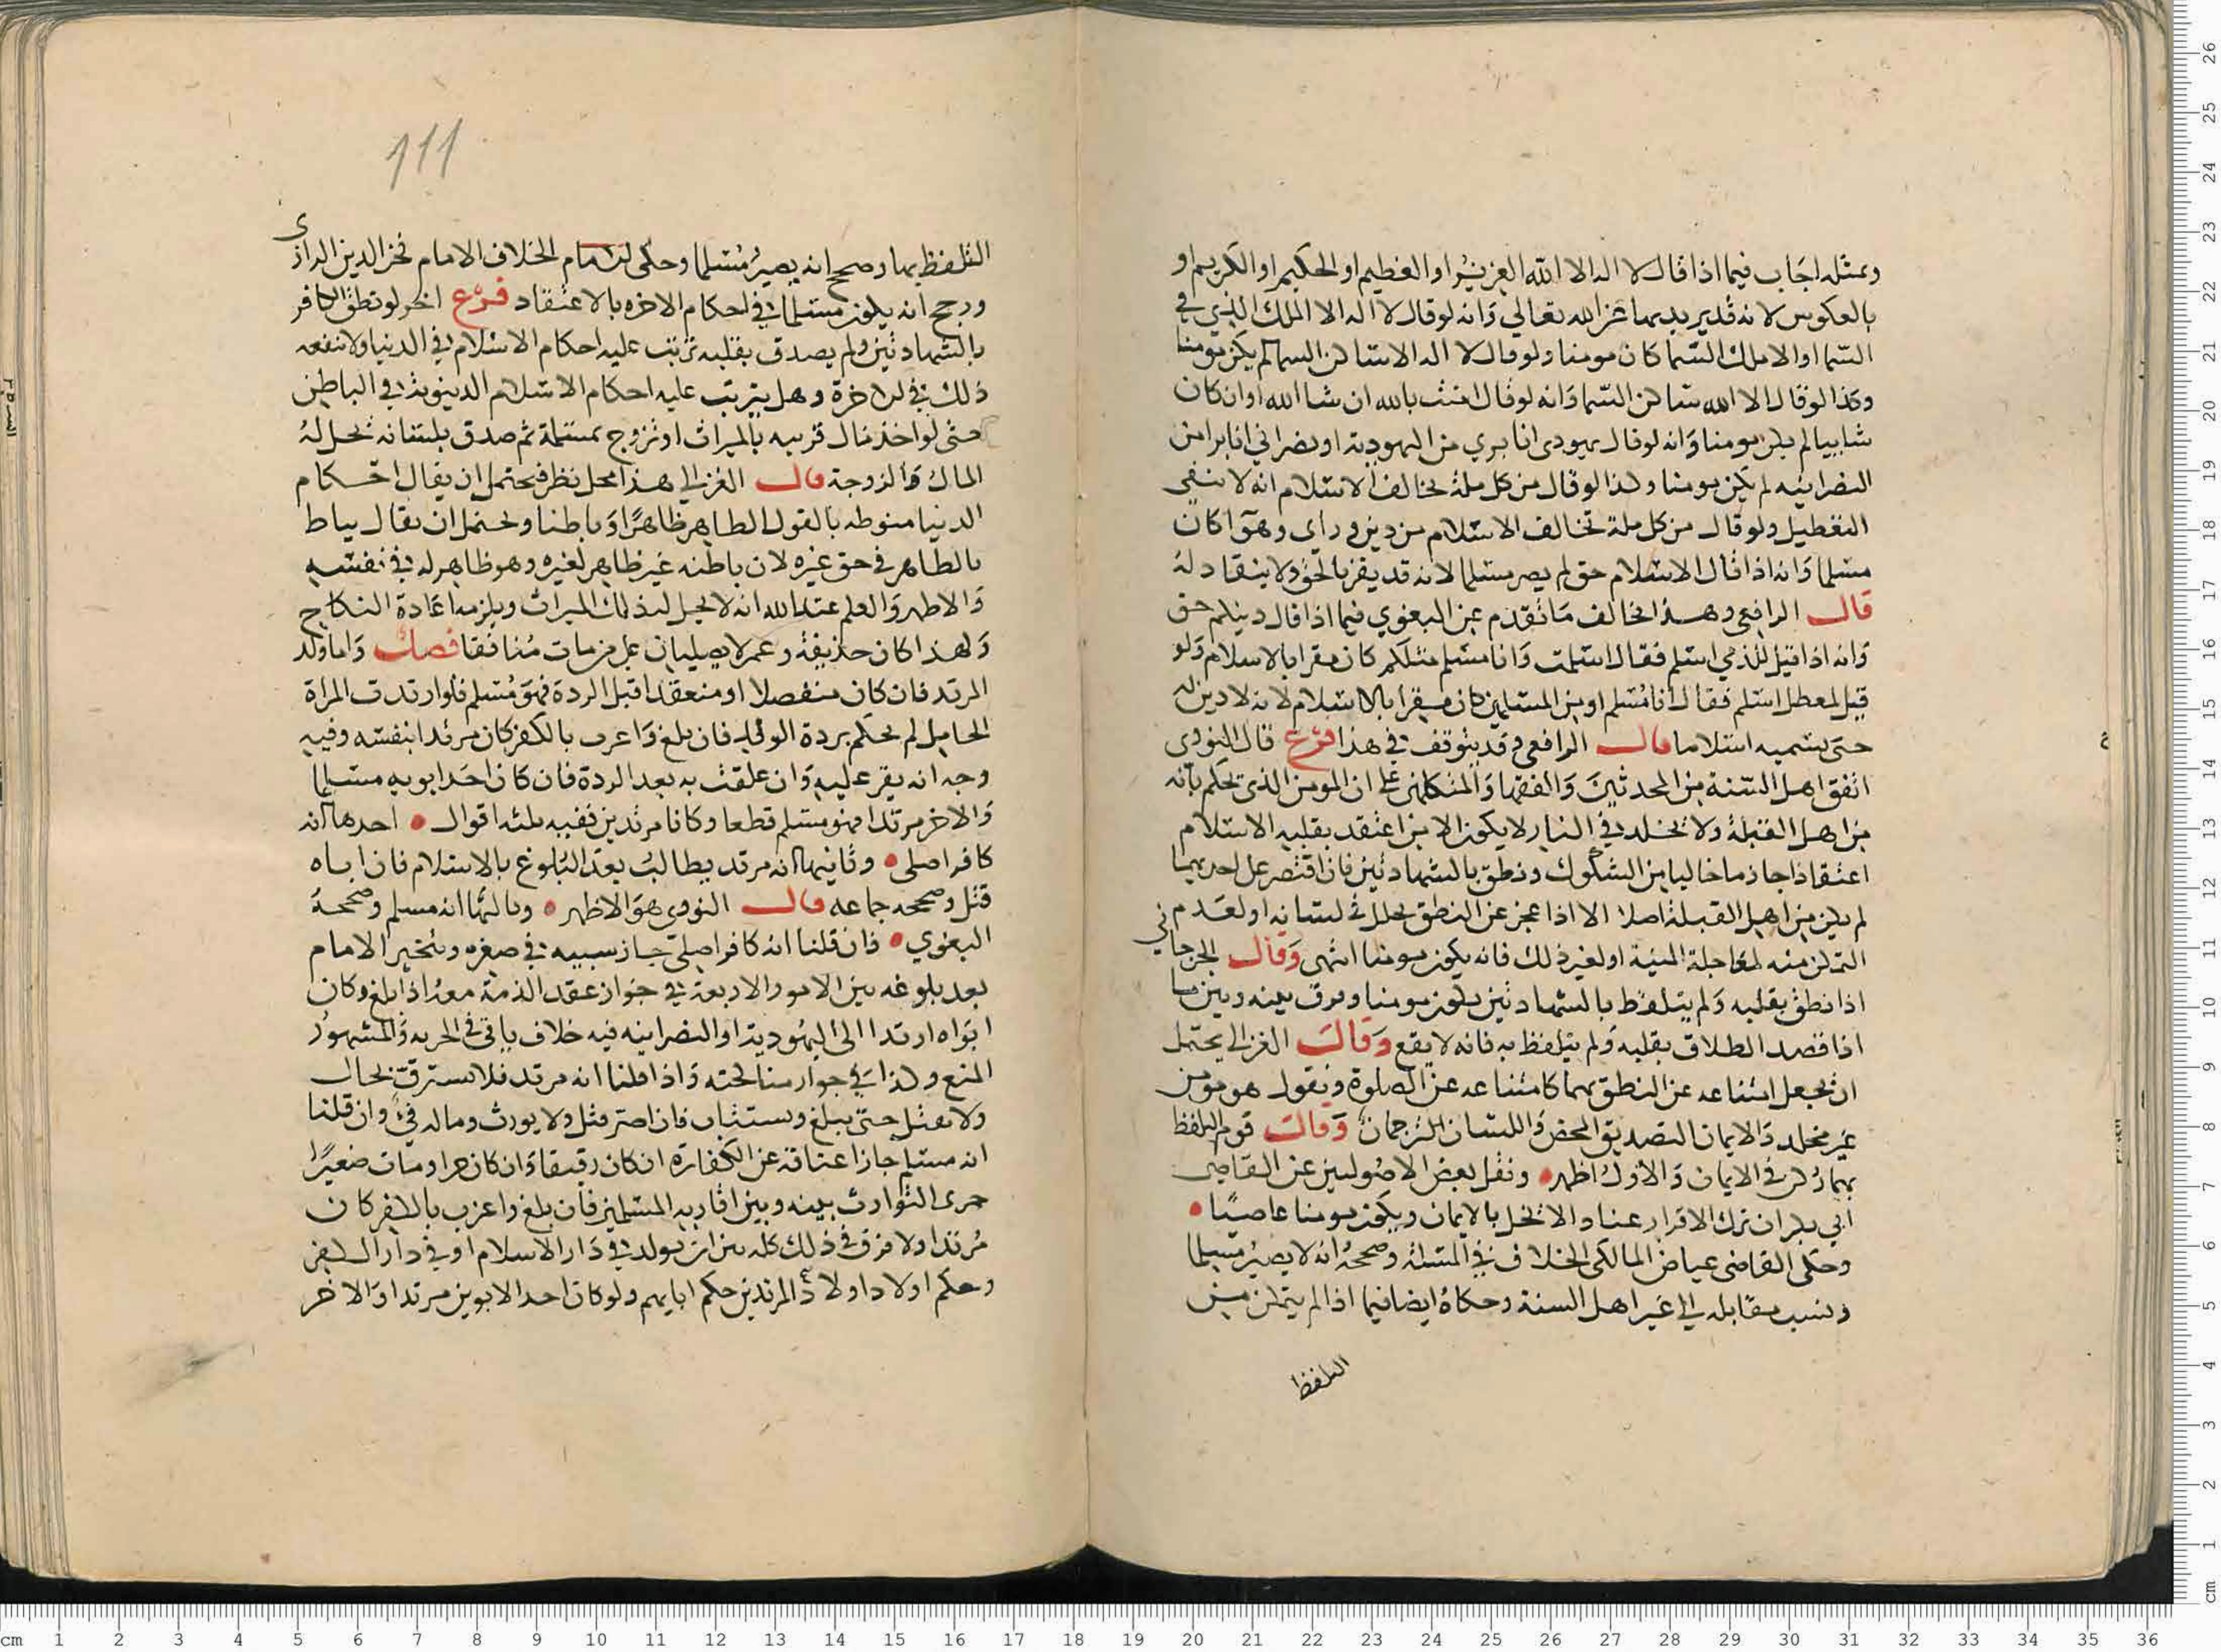 وبمثله اجاب فيما اذا قال لا اله الا الله العزيز او العظيم او الحكيم او الكريم او
بالعكوس لانه قد يريد بهما غير الله تعالي وانه لو قال لا اله الا الملك الذي في
السما او الا ملك السما كان مومنا ولو قال لا اله الا ساكن السما لم يكن مومنا
وكذا لو قال الا الله ساكن السما وانه لو قال امنت بالله ان شا الله او ان كان
شاييا لم يكن مومنا وانه لو قال يهودي انا بري من اليهودية او نصراني انا برا من
النصرانيه لم يكن مومنا وكذا لو قال من كل ملة تخالف الاسلام انه لا ينفي
التعطيل ولو قال من كل ملة تخالف الاسلام من دين وراي وهوا كان
مسلما وانه اذا قال الاسلام حق لم يصر مسلما لانه قد يقر بالحق ولا ينقاد له
قال الرافعي وهذا يخالف ما تقدم عن البغوي فيما اذا قال دينكم حق
وانه اذا قيل للذمي اسلم فقال اسلمت وانا مسلم مثلكم كان مقرا بالاسلام ولو
قيل لمعطل اسلم فقال انا مسلم او من المسلمين كان مقرا بالاسلام لانه لا دين له
حتى يسميه اسلاما قال الرافعي وقد يتوقف في هذا فرع قال النووي
اتفق اهل السنة من المحدثين والفقها والمتكلمين علي ان المومن الذي يحكم بانه
من اهل القبلة ولا يخلد في النار لا يكون الا من اعتقد بقلبه الاسلام
اعتقادا جازما خاليا من الشكوك ونطق بالشهادتين فان اقتصر على احديهما
لم يكن من اهل القبلة اصلا الا اذا عجز عن النطق لخلل في لسانه او لعدم
التمكن منه لمعاجلة المنية او لغير ذلك فانه يكون مومنا انتهى وقال الجرجاني
اذا نطق بقلبه ولم يتلفظ بالشهادتين يكون مومنا وفرق بينه وبين ما
اذا قصد الطلاق بقلبه ولم يتلفظ به فانه لا يقع وقال الغزالي يحتمل
ان يجعل امتناعه عن النطق بهما كامتناعه عن الصلوة ونقول هو مومن
غير مخلد والايمان التصديق المحض واللسان الترجمان وقال قوم التلفظ
بهما ركن في الايمان والاول اظهر ونقل بعض الاصوليين عن القاضي
ابي بكر ان ترك الاقرار عنادا لا يخل بالايمان ويكون مومنا عاصيا
وحكى القاضي عياض المالكي الخلاف في المسئلة وصحح انه لا يصير مسلما
ونسب مقابله الي غير اهل السنة وحكاه ايضا فيما اذا لم يتمكن من
التلفظ
111
التلفظ بها وصحح انه يصير مسلما وحكى الامام الخلاف الامام فخر الدين الرازي
ورجح انه يكون مسلما في احكام الاخره بالاعتقاد فرع اخر لو نطق الكافر
بالشهادتين ولم يصدق بقلبه ترتب عليه احكام الاسلام في الدنيا ولا ينفعه
ذلك في الاخرة وهل يترتب عليه احكام الاسلام الدينوية في الباطن
حتى لو اخذ مال قريبه بالميراث او تزوج بمسلمة ثم صدق بلسانه تحل له
المال والزوجة قال الغزالي هذا محل نظر فيحتمل ان يقال احكام
الدنيا منوطه بالقول الظاهر ظاهرا وباطنا ويحتمل ان يقال يناط
بالظاهر في حق غيره لان باطنه غير ظاهر لغيره وهو ظاهر له في نفسه
والاظهر والعلم عند الله انه لا يحل له ذلك الميراث ويلزمه اعادة النكاح
ولهذا كان حذيفة وعمر لا يصليان على من مات منافقا فصل واما ولد
المرتد فان كان منفصلا او منعقدا قبل الردة فهو مسلم فلو ارتدت المراة
الحامل لم يحكم بردة الولد فان بلغ واعرب بالكفر كان مرتدا بنفسه وفيه
وجه انه يقر عليه وان علقت به بعد الردة فان كان احد ابويه مسلما
والاخر مرتدا فهو مسلم قطعا وكانا مرتدين ففيه ثلثه اقوال احدها انه
كافر اصلي وثانيها انه مرتد يطالب بعد البلوغ بالاسلام فان اباه
قتل وصححه جماعه قال النووي هو الاظهر وثالثها انه مسلم وصححه
البغوي فان قلنا انه كافر اصلي جاز سبيه في صغره ويتخير الامام
بعد بلوغه بين الامور الاربعة في جواز عقد الذمة معه اذا بلغ وكان
ابواه ارتدا الى اليهودية او النصرانيه فيه خلاف ياتي في الجزيه والمشهور
المنع وكذا في جواز مناكحته واذا قلنا انه مرتد فلا يسترق بحال
ولا يقتل حتى يبلغ ويستتاب فان اصر قتل ولا يورث وماله في وان قلنا
انه مسلم جاز اعتاقه عن الكفارة ان كان رقيقا وان كان حرا ومات صغيرا
جرى التوارث بينه وبين اقاربه المسلمين فان بلغ واعرب بالكفر كان
مرتدا ولا فرق في ذلك كله بين ان يولد في دار الاسلام او في دار الكفر
وحكم اولاد اولاد المرتدين حكم ابايهم ولو كان احد الابوين مرتدا والاخر